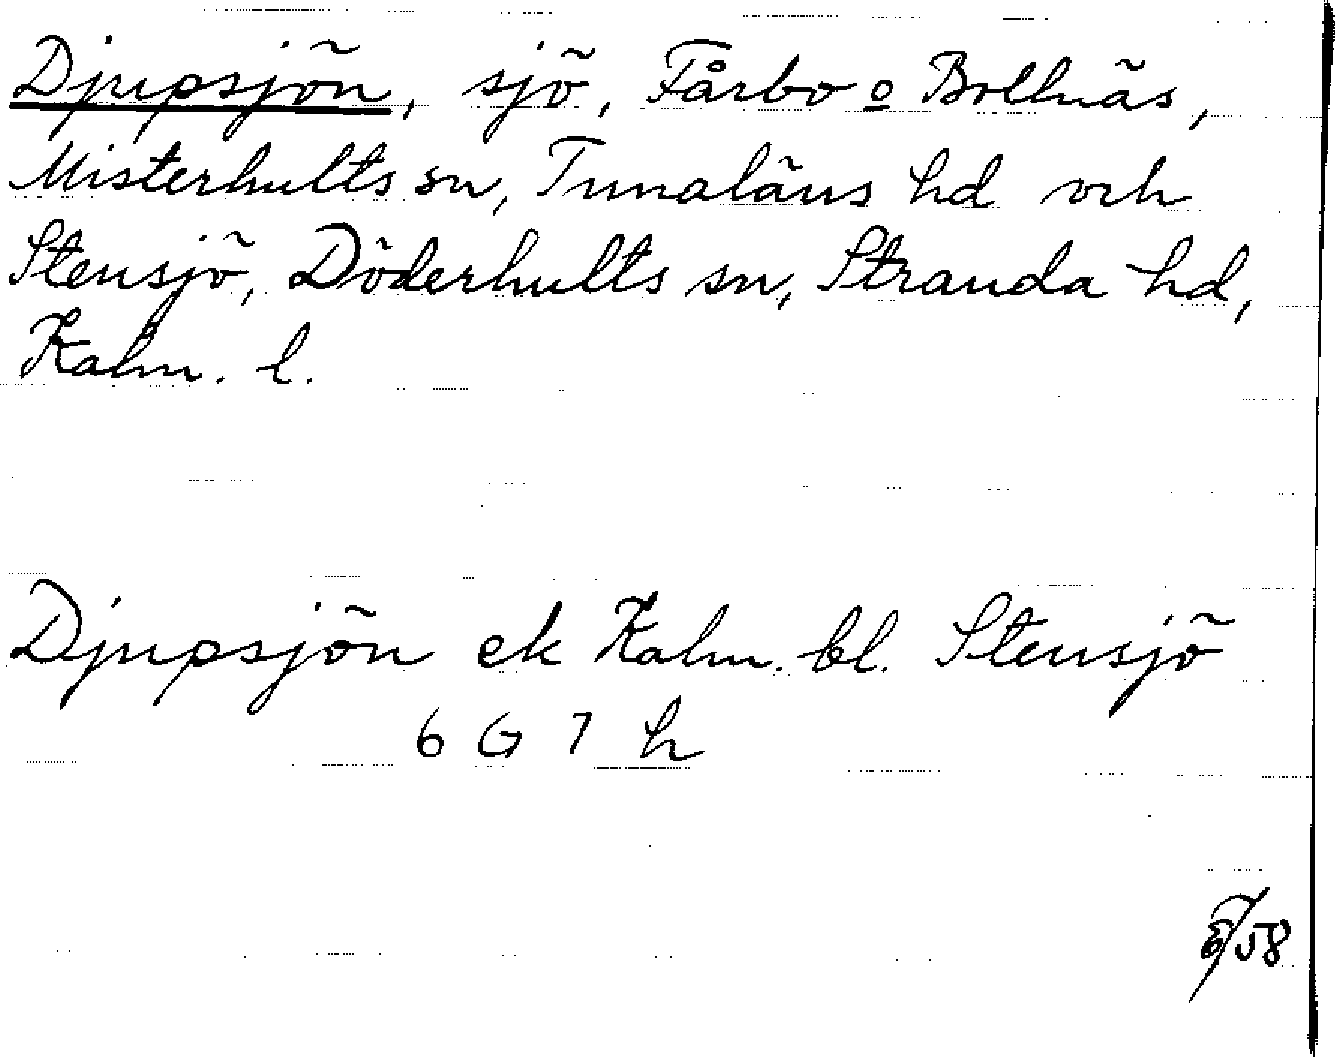 Djupsjön, sjö, Fårbo o Bollnäs,
Misterhults sn, Tunaläns hd och
Stensjö, Döderhults sn, Stranda hd,
Kalm. l.
Djupsjön ek Kalm. bl. Stensjö
6 G 7 h
/58